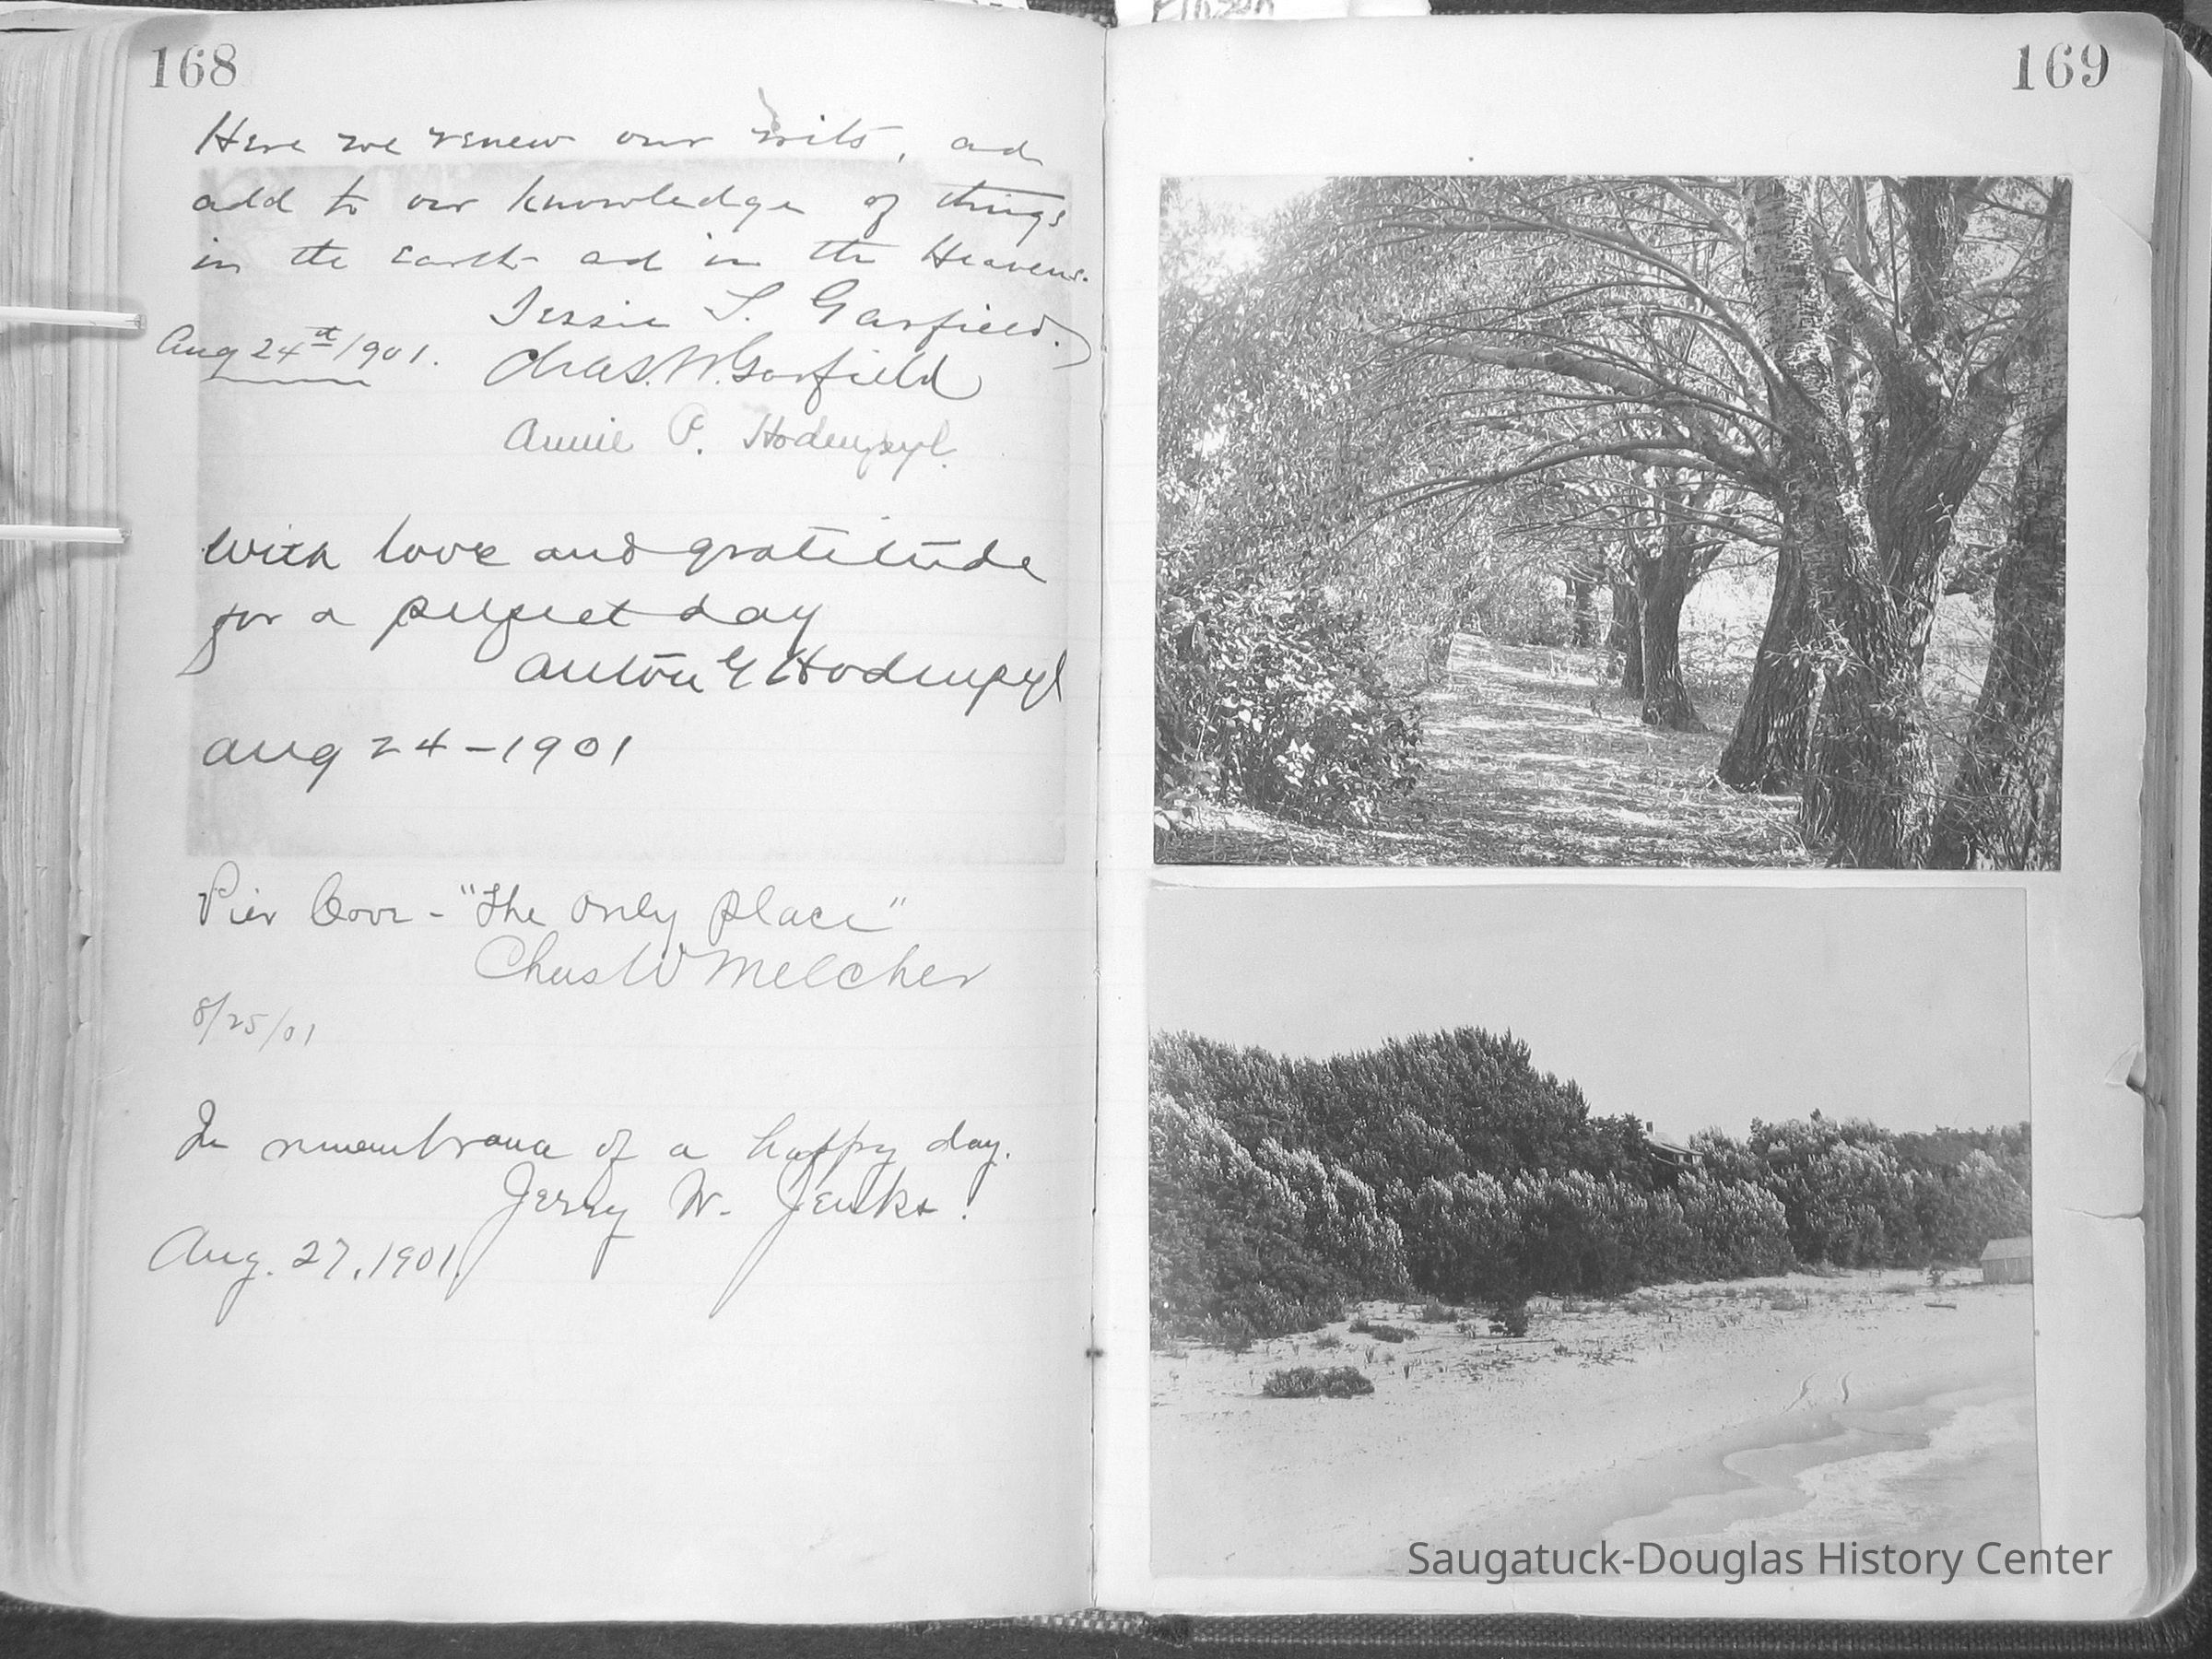 168
Here we renew our wits, and
add to our knowledge of things
in the earth and in the Heavens.
Jessie S. Garfield.
Aug 24st/1901.
Chas. W. Garfield
Annie P. Hodenpyl.
With love and gratitude
for a perfect day
Anton G Hodenpyl
Aug 24-1901
Pier Cove - "The only place"
Chas W Melcher
8/25/01
In remembrance of a happy day.
Jerry W. Jenks.
Aug. 27, 1901.
169
Saugatuck-Douglas History Center